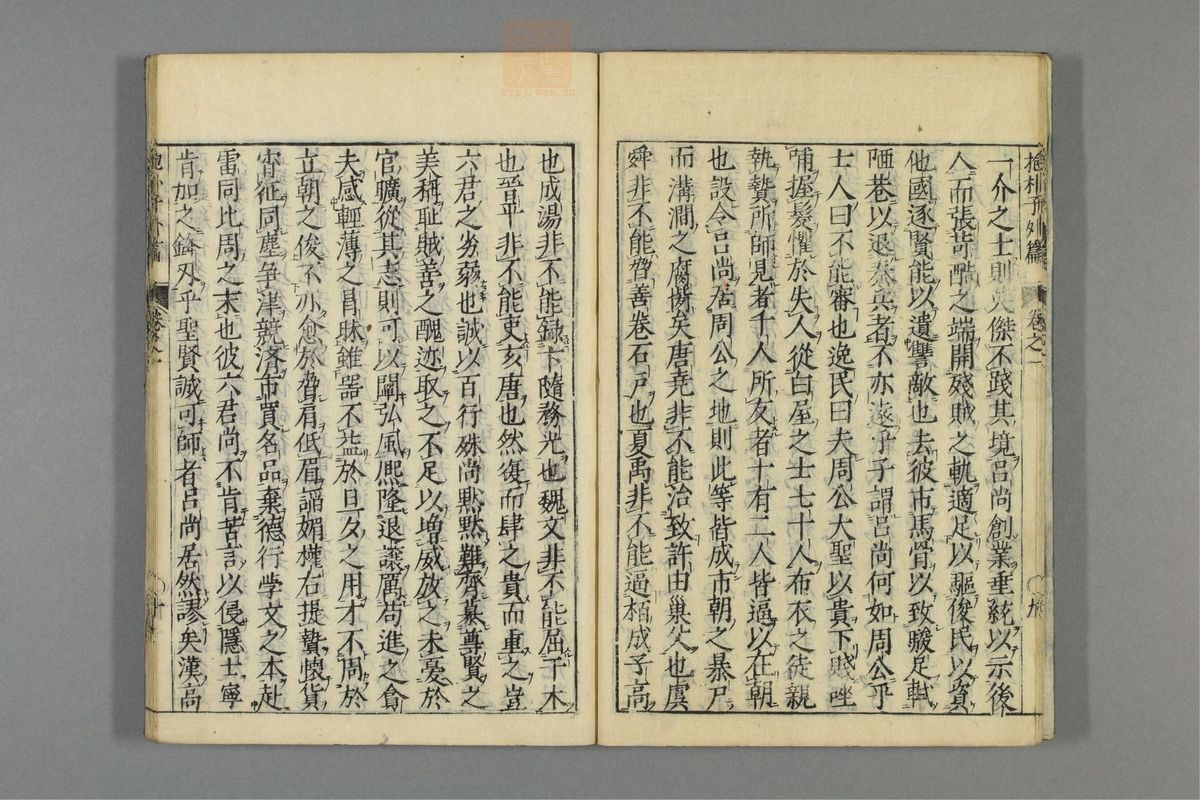 抱朴子外篇 卷之一 〇九
一介之士則英傑不踐其境呂尚創業垂統以示後
人而張苛酷之端開殘賊之軌適足以驅俊民以資
他國逐賢能以遺讐敵也去彼市馬骨以致駿足軾
陋巷以退秦兵者不亦遠乎子謂呂尚何如周公乎
士人曰不能審也逸民曰夫周公大聖以貴下賤唑
哺握髮懼於失人從白屋之士七十人布衣之徒親
執贄所師見者十人所友者十有二人皆逼以在朝
也設令呂尚居周公之地則此等皆成市朝之暴尸
而溝澗之腐胔矣唐堯非不能治致許由巢父也虞
舜非不能脅善卷石戶也夏禹非不能逼栢成子高
也成湯非不能錄卞隨務光也魏文非不能屈干木
也晉平非不能吏亥唐也然復而肆之貴而重之豈
六君之劣蒻也誠以百行殊尚默默難齊慕尊賢之
美稱耻賊善之醜迹取之不足以增威放之未憂於
官曠從其志則可以闡弘風熙隆退讓厲苟進之貪
夫感輕薄之冒昧雖器不益於旦夕之用才不周於
立朝之俊不亦愈於脅肩低眉謟媚權右提贄懷貨
宵征同塵爭津競済市買名品棄德行学文之本赴
雷同比周之末也彼六君尚不肯苦言以侵隱士寧
肯加之鋒刃乎聖賢誠可師者呂尚居然謬矣漢高
卷之一 〇十